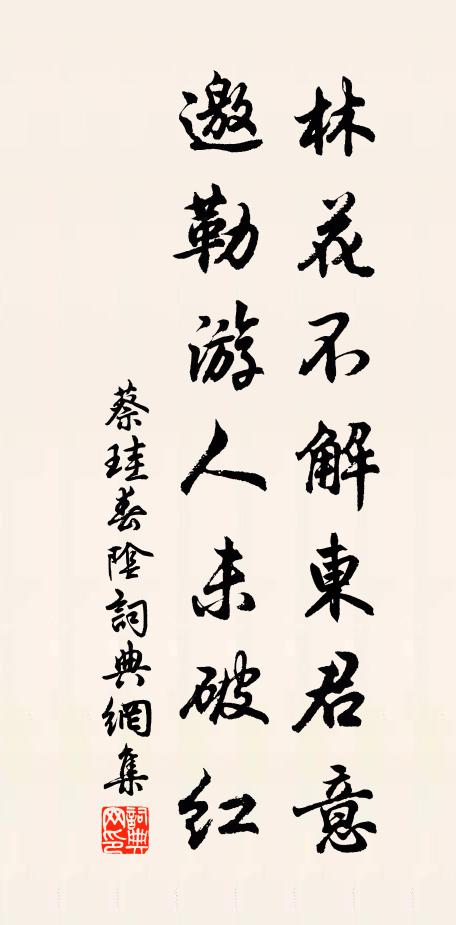 林花不解東君意
邀勒游人未破红
蔡珪春陰詞典網集
詞典
网印